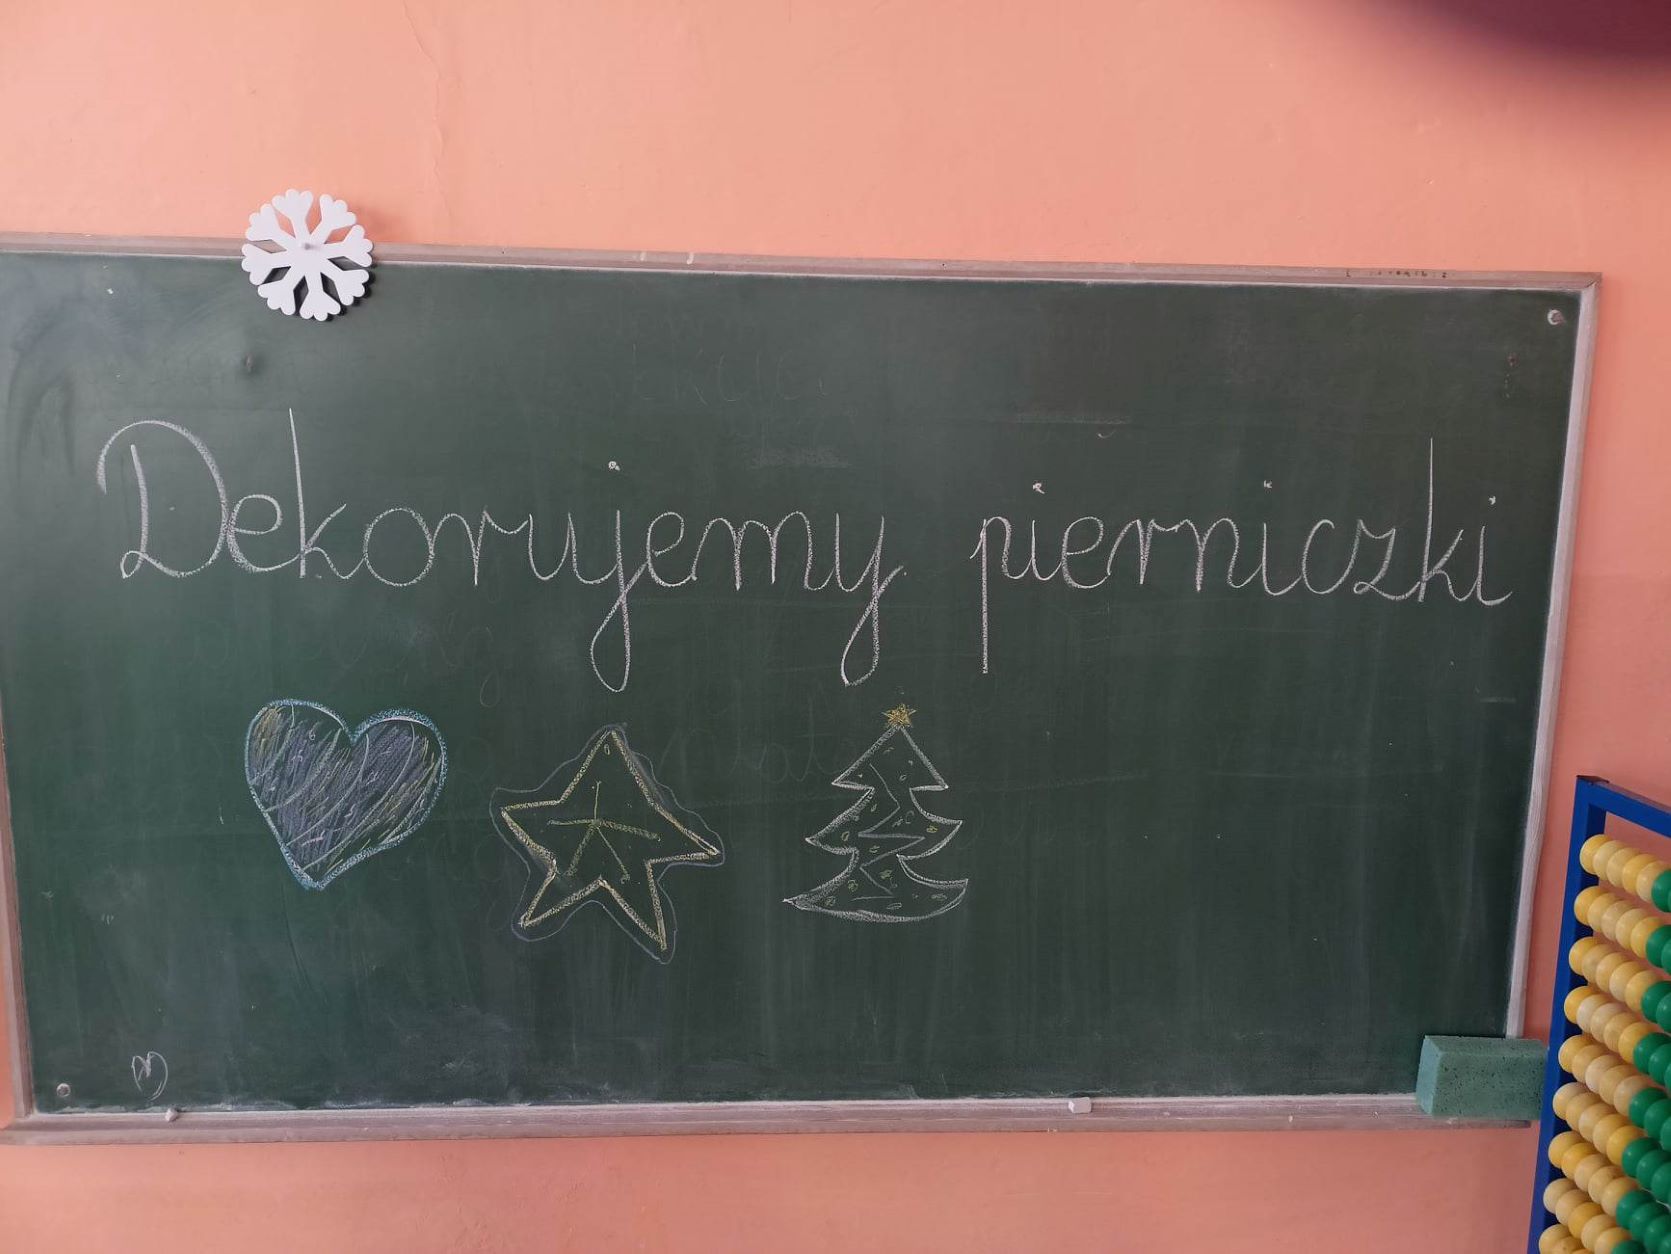 Dekorujemy pierniczki